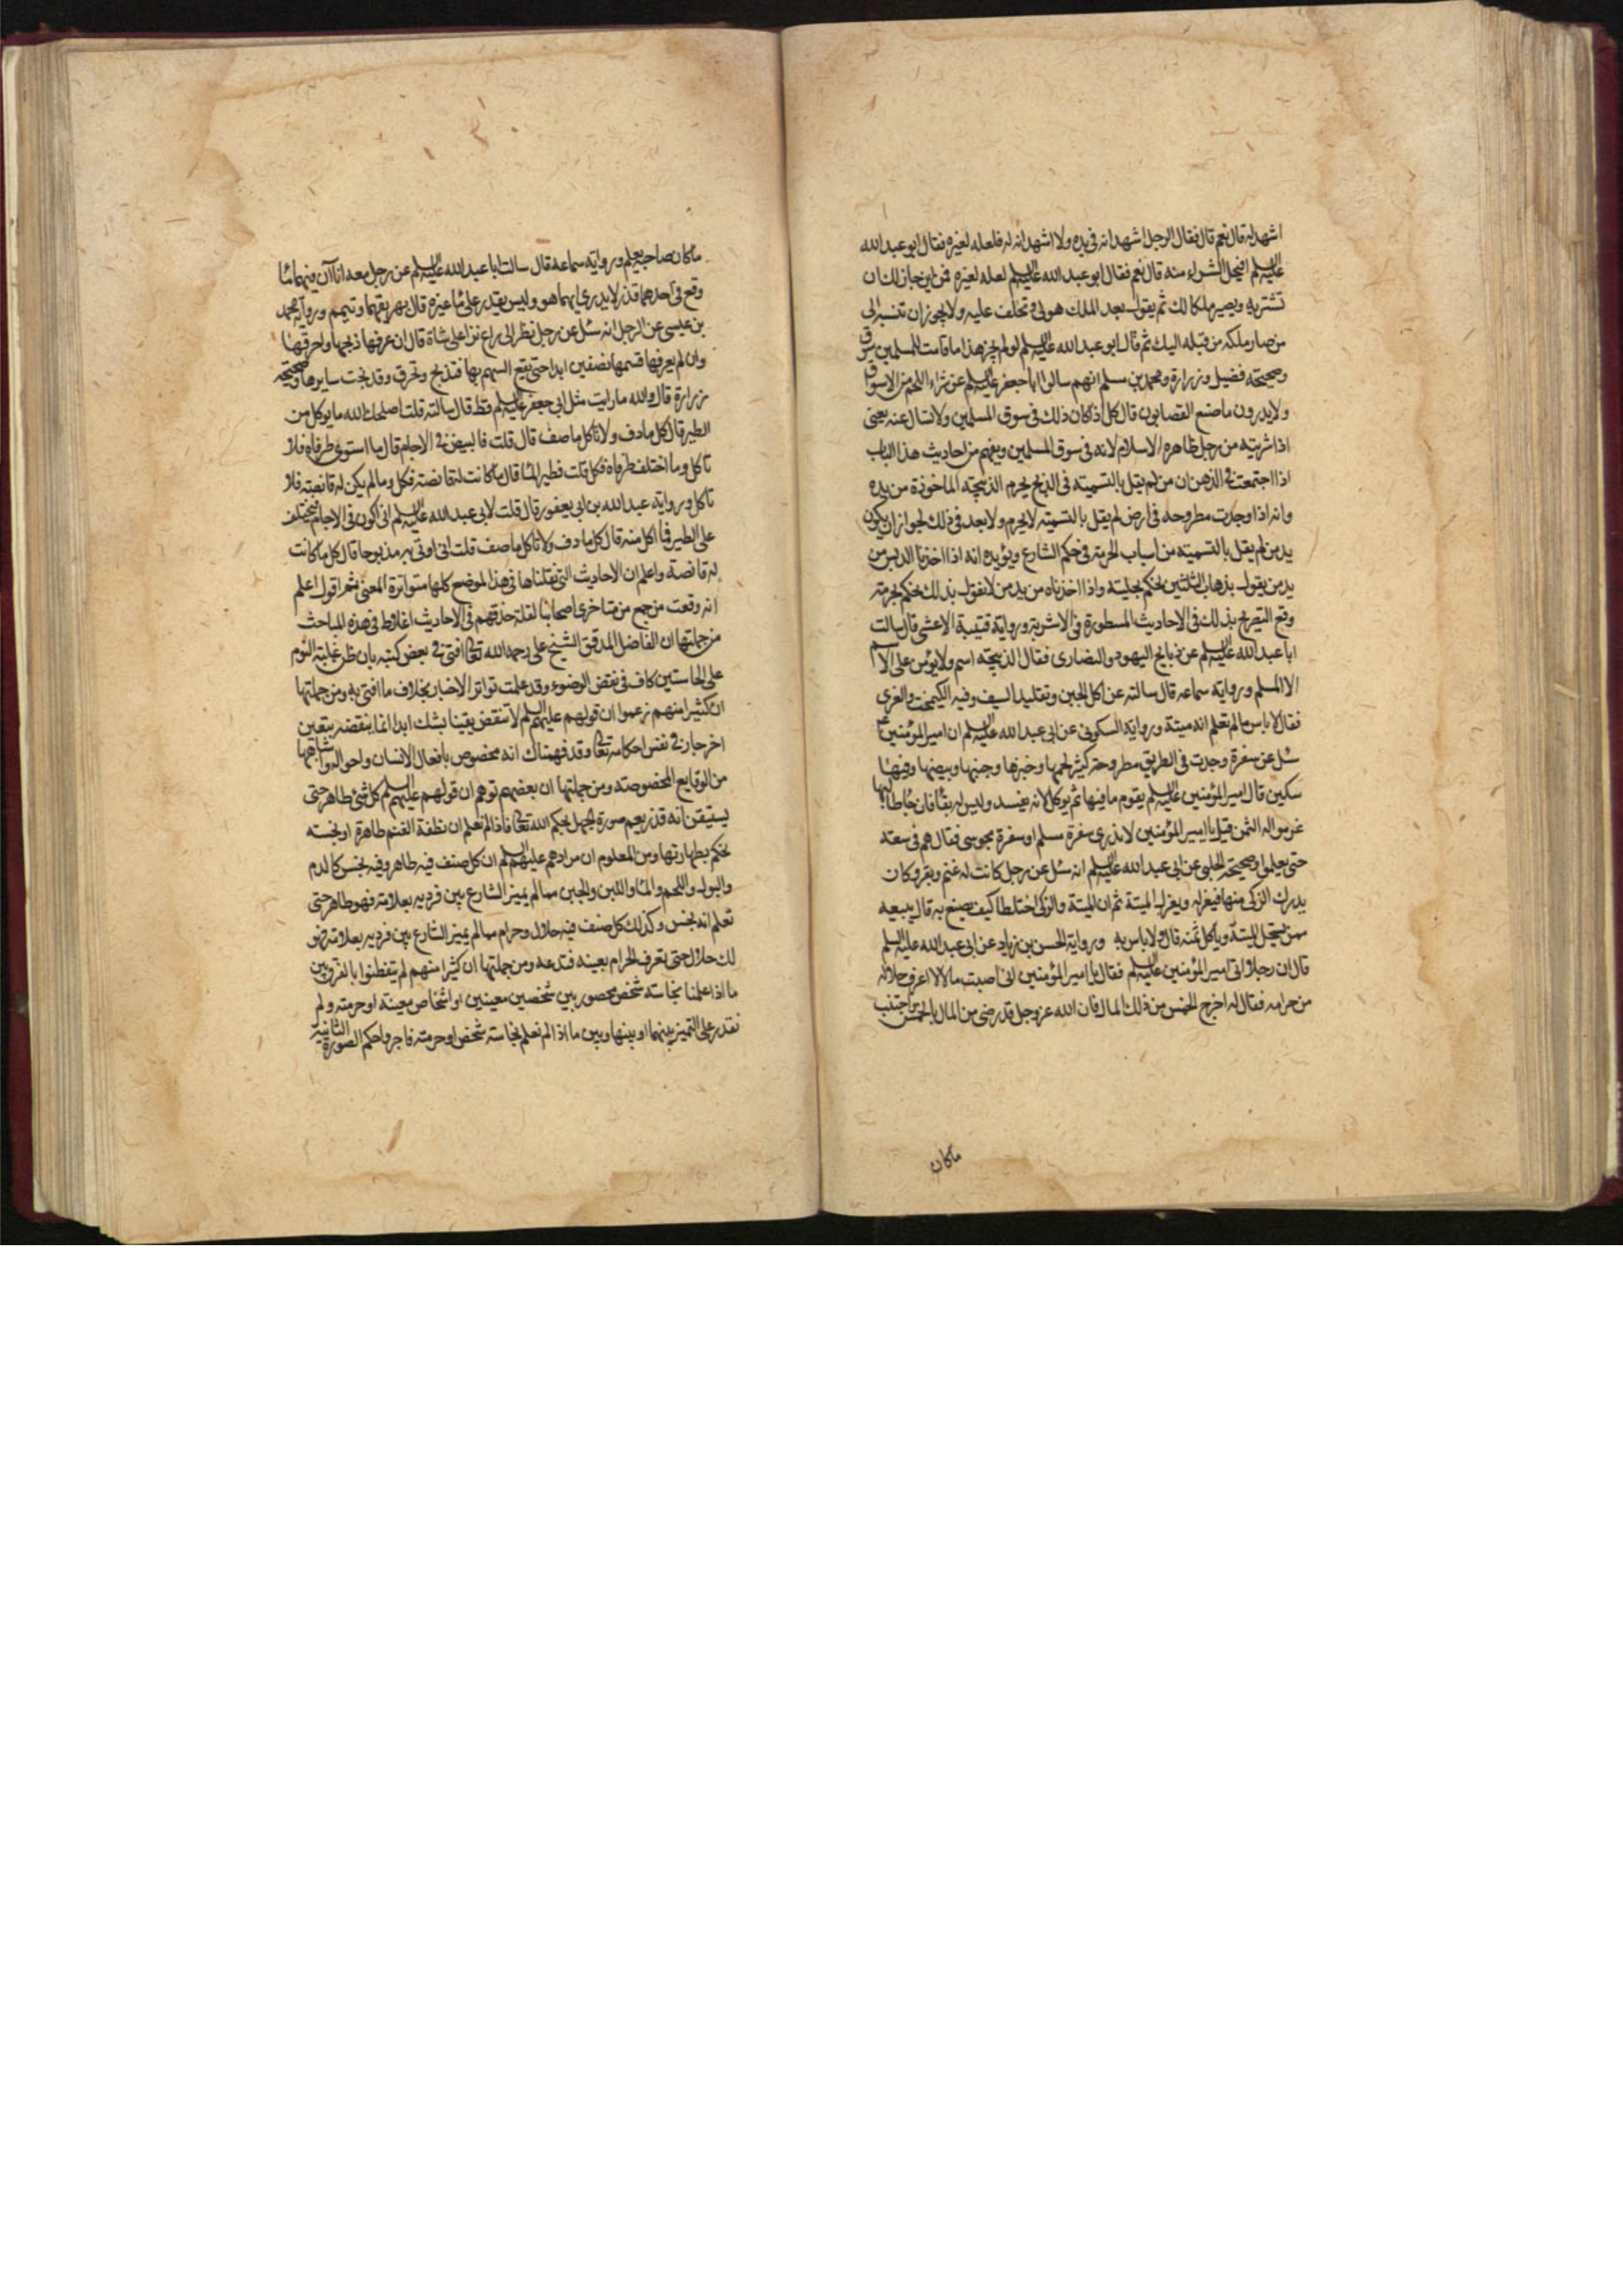 اشهد له قال نعم قال فقال الرجل اشهد انه في يده ولا اشهد انه له فلعله لغيره فقال ابو عبد الله
عليه السلم افيحل الشراء منه قال نعم فقال ابو عبد الله عليه السلم لعله لغيره فمن اين جاز لك ان
تشتريه ويصير ملكا لك ثم يقول بعد الملك هو لي وتحلف عليه ولا يجوز ان تنسبه الى
من صار ملكه من قبله اليك ثم قال ابو عبد الله عليه السلم لو لم يجز هذا ما قامت للمسلمين سوق
وصحيحة فضيل وزرارة ومحمد بن مسلم انهم سالوا ابا جعفر عليه السلم عن شراء اللحم من الاسواق
ولا يدرون ما صنع القصابون قال كل اذا كان ذلك في سوق المسلمين ولا تسال عنه يعني
اذا شريته من رجل ظاهره الاسلام لانه في سوق المسلمين ويفهم من احاديث هذا الباب
اذا اجتمعت في الذهن ان من لم يقل بالتسمية في الذبح يحرم الذبيحة الماخوذة من يده
وانه اذا وجدت مطروحه في ارض لم يقل بالتسمية لا يحرم ولا بعد في ذلك لجواز ان يكون
يد من لم يقل بالتسمية من اسباب الحرمة في حكم الشارع ويؤيده انه اذا اخذنا الدبس من
يد من يقول بذهاب الثلثين نحكم بحليته واذا اخذناه من يد من لا يقول بذلك نحكم بحرمته
وقع التصريح بذلك في الاحاديث المسطورة في الاشربة ورواية قتيبة الاعشى قال سالت
ابا عبد الله عليه السلم عن ذبايح اليهود والنصارى فقال الذبيحة اسم ولا يؤمن على الاسم
الا المسلم ورواية سماعه قال سالته عن اكل الجبن وتقليد السيف وفيه الكيمخت والغرى
فقال لا باس ما لم تعلم انه ميتة ورواية السكوني عن ابي عبد الله عليه السلم ان امير المؤمنين ع
سئل عن سفرة وجدت في الطريق مطروحة كثير لحمها وخبزها وجبنها وبيضها وفيها
سكين قال امير المؤمنين عليه السلم يقوم ما فيها ثم يوكل لانه يفسد وليس له بقا فان جا طالبها
غرموا له الثمن قيل يا امير المؤمنين لا ندري سفرة مسلم او سفرة مجوسي فقال هم في سعة
حتى يعلموا وصحيحة الحلبي عن ابي عبد الله عليه السلم انه سئل عن رجل كانت له غنم وبقر وكان
يدرك الزكي منها فيعزله ويعزل الميتة ثم ان الميتة والزكي اختلطا كيف يصنع به قال يبيعه
ممن يستحل الميتة وياكل ثمنه قال ولا باس به ورواية الحسن بن زياد عن ابي عبد الله عليه السلم
قال ان رجلا اتى امير المؤمنين عليه السلم فقال يا امير المؤمنين اني اصبت مالا لا اعرف حلاله
من حرامه فقال له اخرج الخمس من ذلك المال فان الله عز وجل قد رضي من المال بالخمس واجتنب
ماكان
ما كان صاحبه يعلم ورواية سماعه قال سالت ابا عبد الله عليه السلم عن رجل معه اناآن فيهما مآء
وقع في احدهما قذر لا يدري ايهما هو وليس يقدر على مآء غيره قال يهريقهما وتيمم ورواية محمد
بن عيسى عن الرجل انه سئل عن رجل نظر الى راع نزا على شاة قال ان عرفها ذبحها واحرقها
وان لم يعرفها قسمها نصفين ابدا حتى يقع السهم بها فتذبح وتحرق وقد نجت سايرها وصحيحة
زرارة قال والله ما رايت مثل ابي جعفر عليه السلم قط قال سالته قلت اصلحك الله ما يوكل من
الطير قال كل ما دف ولا تاكل ما صف قال قلت فالبيض في الاجام قال ما استوى طرفاه فلا
تاكل وما اختلف طرفاه فكل قلت فطير المآء قال ما كانت له قانصة فكل وما لم يكن له قانصة فلا
تاكل ورواية عبد الله بن ابي يعفور قال قلت لابي عبد الله عليه السلم اني اكون في الاجام فيختلف
على الطير فما اكل منه قال كل ما دف ولا تاكل ما صف قلت اني اوتى به مذبوحا قال كل ما كانت
له قانصة واعلم ان الاحاديث التي نقلناها في هذا الموضع كلها متواترة المعنى ثم اقول اعلم
انه وقعت من جمع من متاخري اصحابنا لقلة حذقهم في الاحاديث اغلاط في هذه المباحث
من جملتها ان الفاضل المدقق الشيخ علي رحمه الله تعالى افتى في بعض كتبه بان ظن غلبة النوم
على الحاستين كاف في نقض الوضوء وقد علمت تواتر الاخبار بخلاف ما افتى به ومن جملتها
ان كثيرا منهم زعموا ان قولهم عليهم السلم لا تنقض يقينا بشك ابدا انما ينقضه بيقين
اخر جار في نفس احكامه تعالى وقد فهمناك انه مخصوص بافعال الانسان واحواله واشباهها
من الوقايع المخصوصة ومن جملتها ان بعضهم توهم ان قولهم عليهم السلم كل شئ طاهر حتى
يستيقن انه قذر يعم صورة الجهل بحكم الله تعالى فاذا لم نعلم ان نطفة الغنم طاهرة او نجسه
نحكم بطهارتها ومن المعلوم ان مرادهم عليهم السلم ان كل صنف فيه طاهر وفيه نجس كالدم
والبول واللحم والمآء واللبن والجبن مما لم يميز الشارع بين فرديه بعلامة فهو طاهر حتى
تعلم انه نجس وكذلك كل صنف فيه حلال وحرام مما لم يميز الشارع بين فرديه بعلامة فهو
لك حلال حتى تعرف الحرام بعينه فتدعه ومن جملتها ان كثيرا منهم لم يتفطنوا بالفرق بين
ما اذا علمنا نجاسة شخص محصور بين شخصين معينين او اشخاص معينه او حرمته ولم
نقدر على التميز بينهما او بينها وبين ما اذا لم نعلم نجاسة شخص او حرمته فاجروا حكم الصورة الثانية